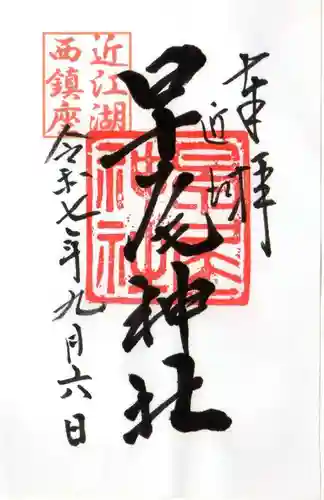 奉拝
近江
早尾神社
近江湖
西鎮座
令和七年九月六日